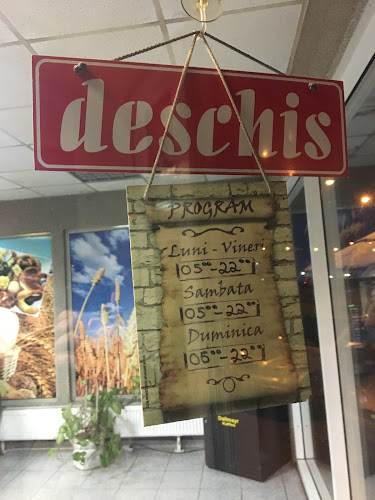 deschis
PROGRAM
Luni - Vineri
05⁰⁰-22⁰⁰
Sambata
05⁰⁰-22⁰⁰
Duminica
05⁰⁰-22⁰⁰